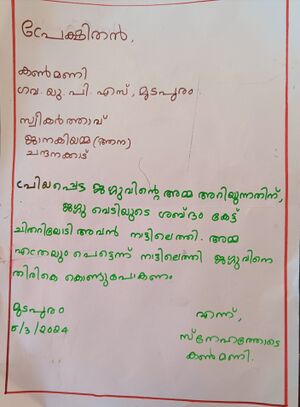 പ്രേക്ഷിതൻ,
കൺമണി
ഗവ. യു. പി. എസ്, മുടപുരം
സ്വീകർത്താവ്
ജാനകിയമ്മ (ആന)
ചന്ദനക്കാട്
പ്രിയപ്പെട്ട ജഗ്ഗുവിന്റെ അമ്മ അറിയുന്നതിന്,
ജഗ്ഗു വെടിയുടെ ശബ്ദം കേട്ട്
ചിതറിയോടി അവൻ നാട്ടിലെത്തി. അമ്മ
എത്രയും പെട്ടെന്ന് നാട്ടിലെത്തി ജഗ്ഗുവിനെ
തിരികെ കൊണ്ടുപോകണം
മുടപുരം
5/3/2024
എന്ന്,
സ്നേഹത്തോടെ
കൺമണി.